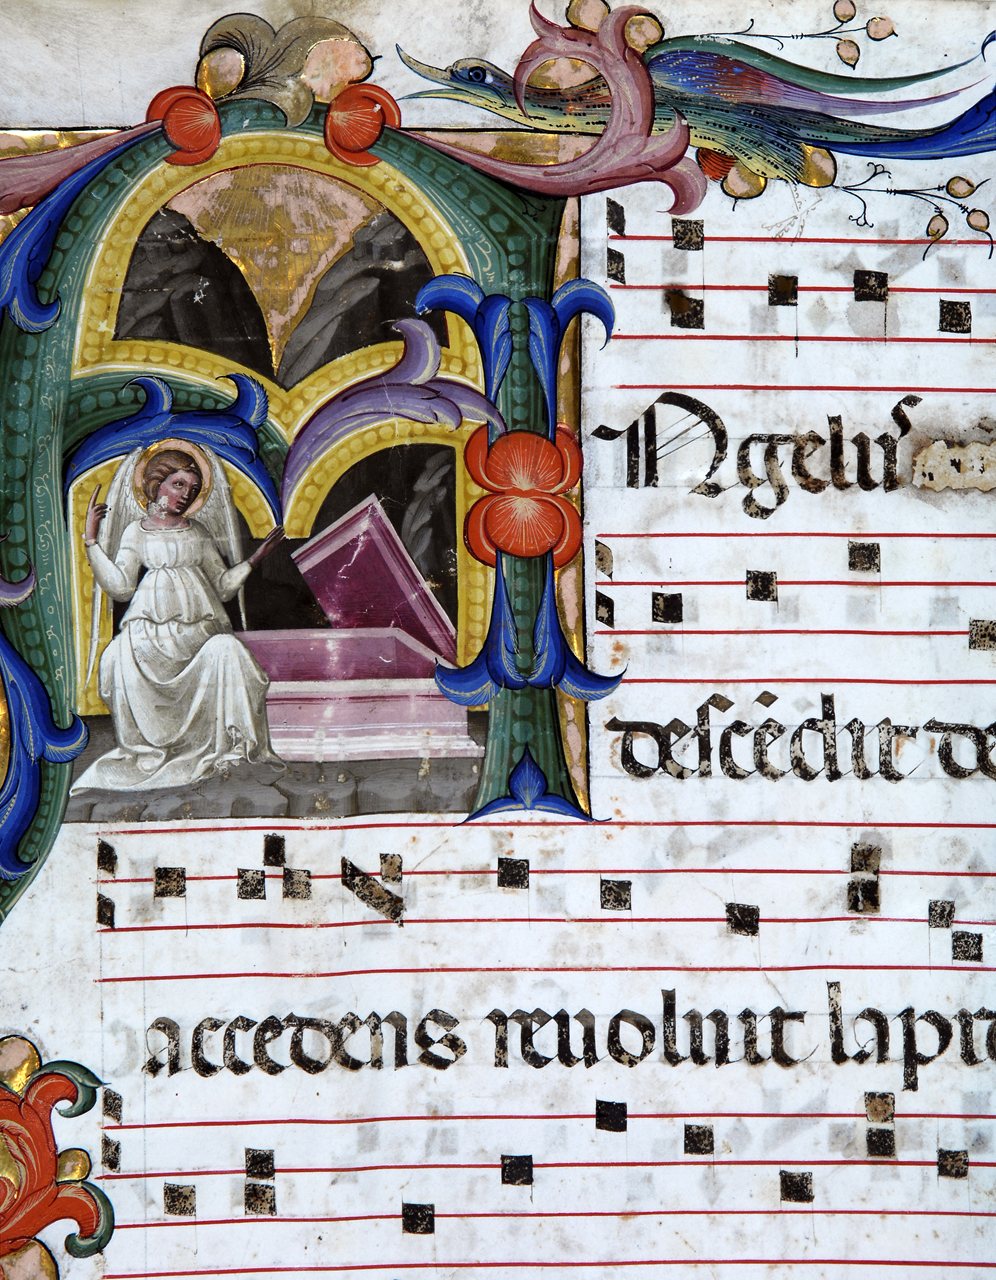 ANgelus
descēdit de
accedens reuoluit lapi